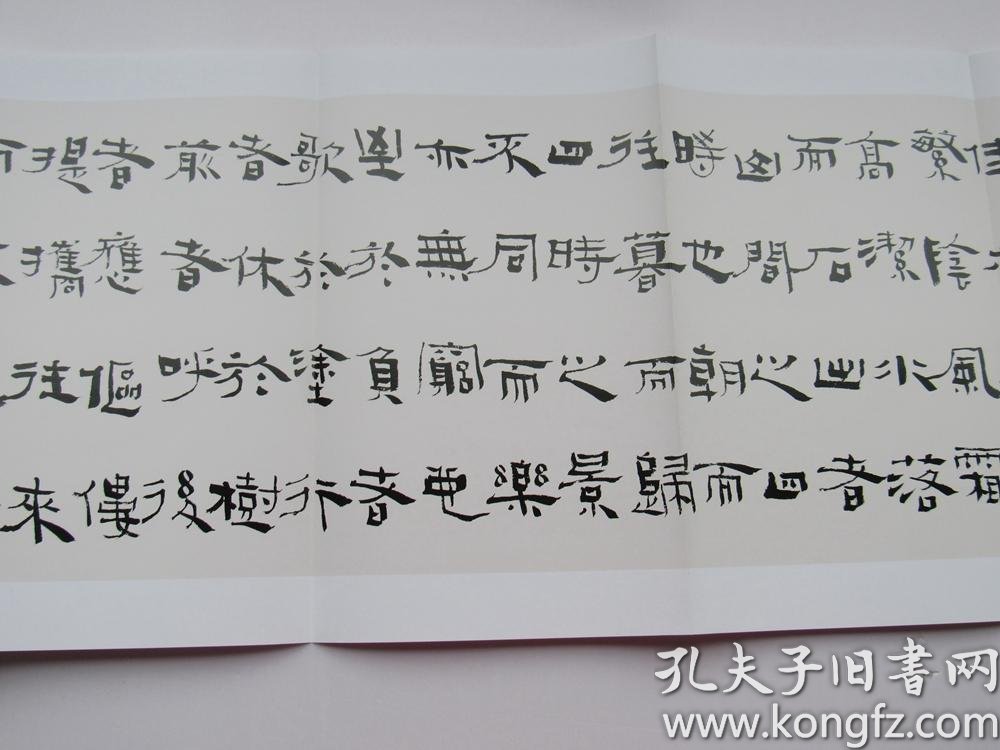 佳
繁陰風霜
高潔水落
而石出者
山間之四
時也朝而
往暮而歸
四時之景
不同而樂
亦無窮也
至於負者
歌於塗行
者休於樹
前者呼後
者應傴僂
提攜往來
而
孔夫子旧書网
www.kongfz.com